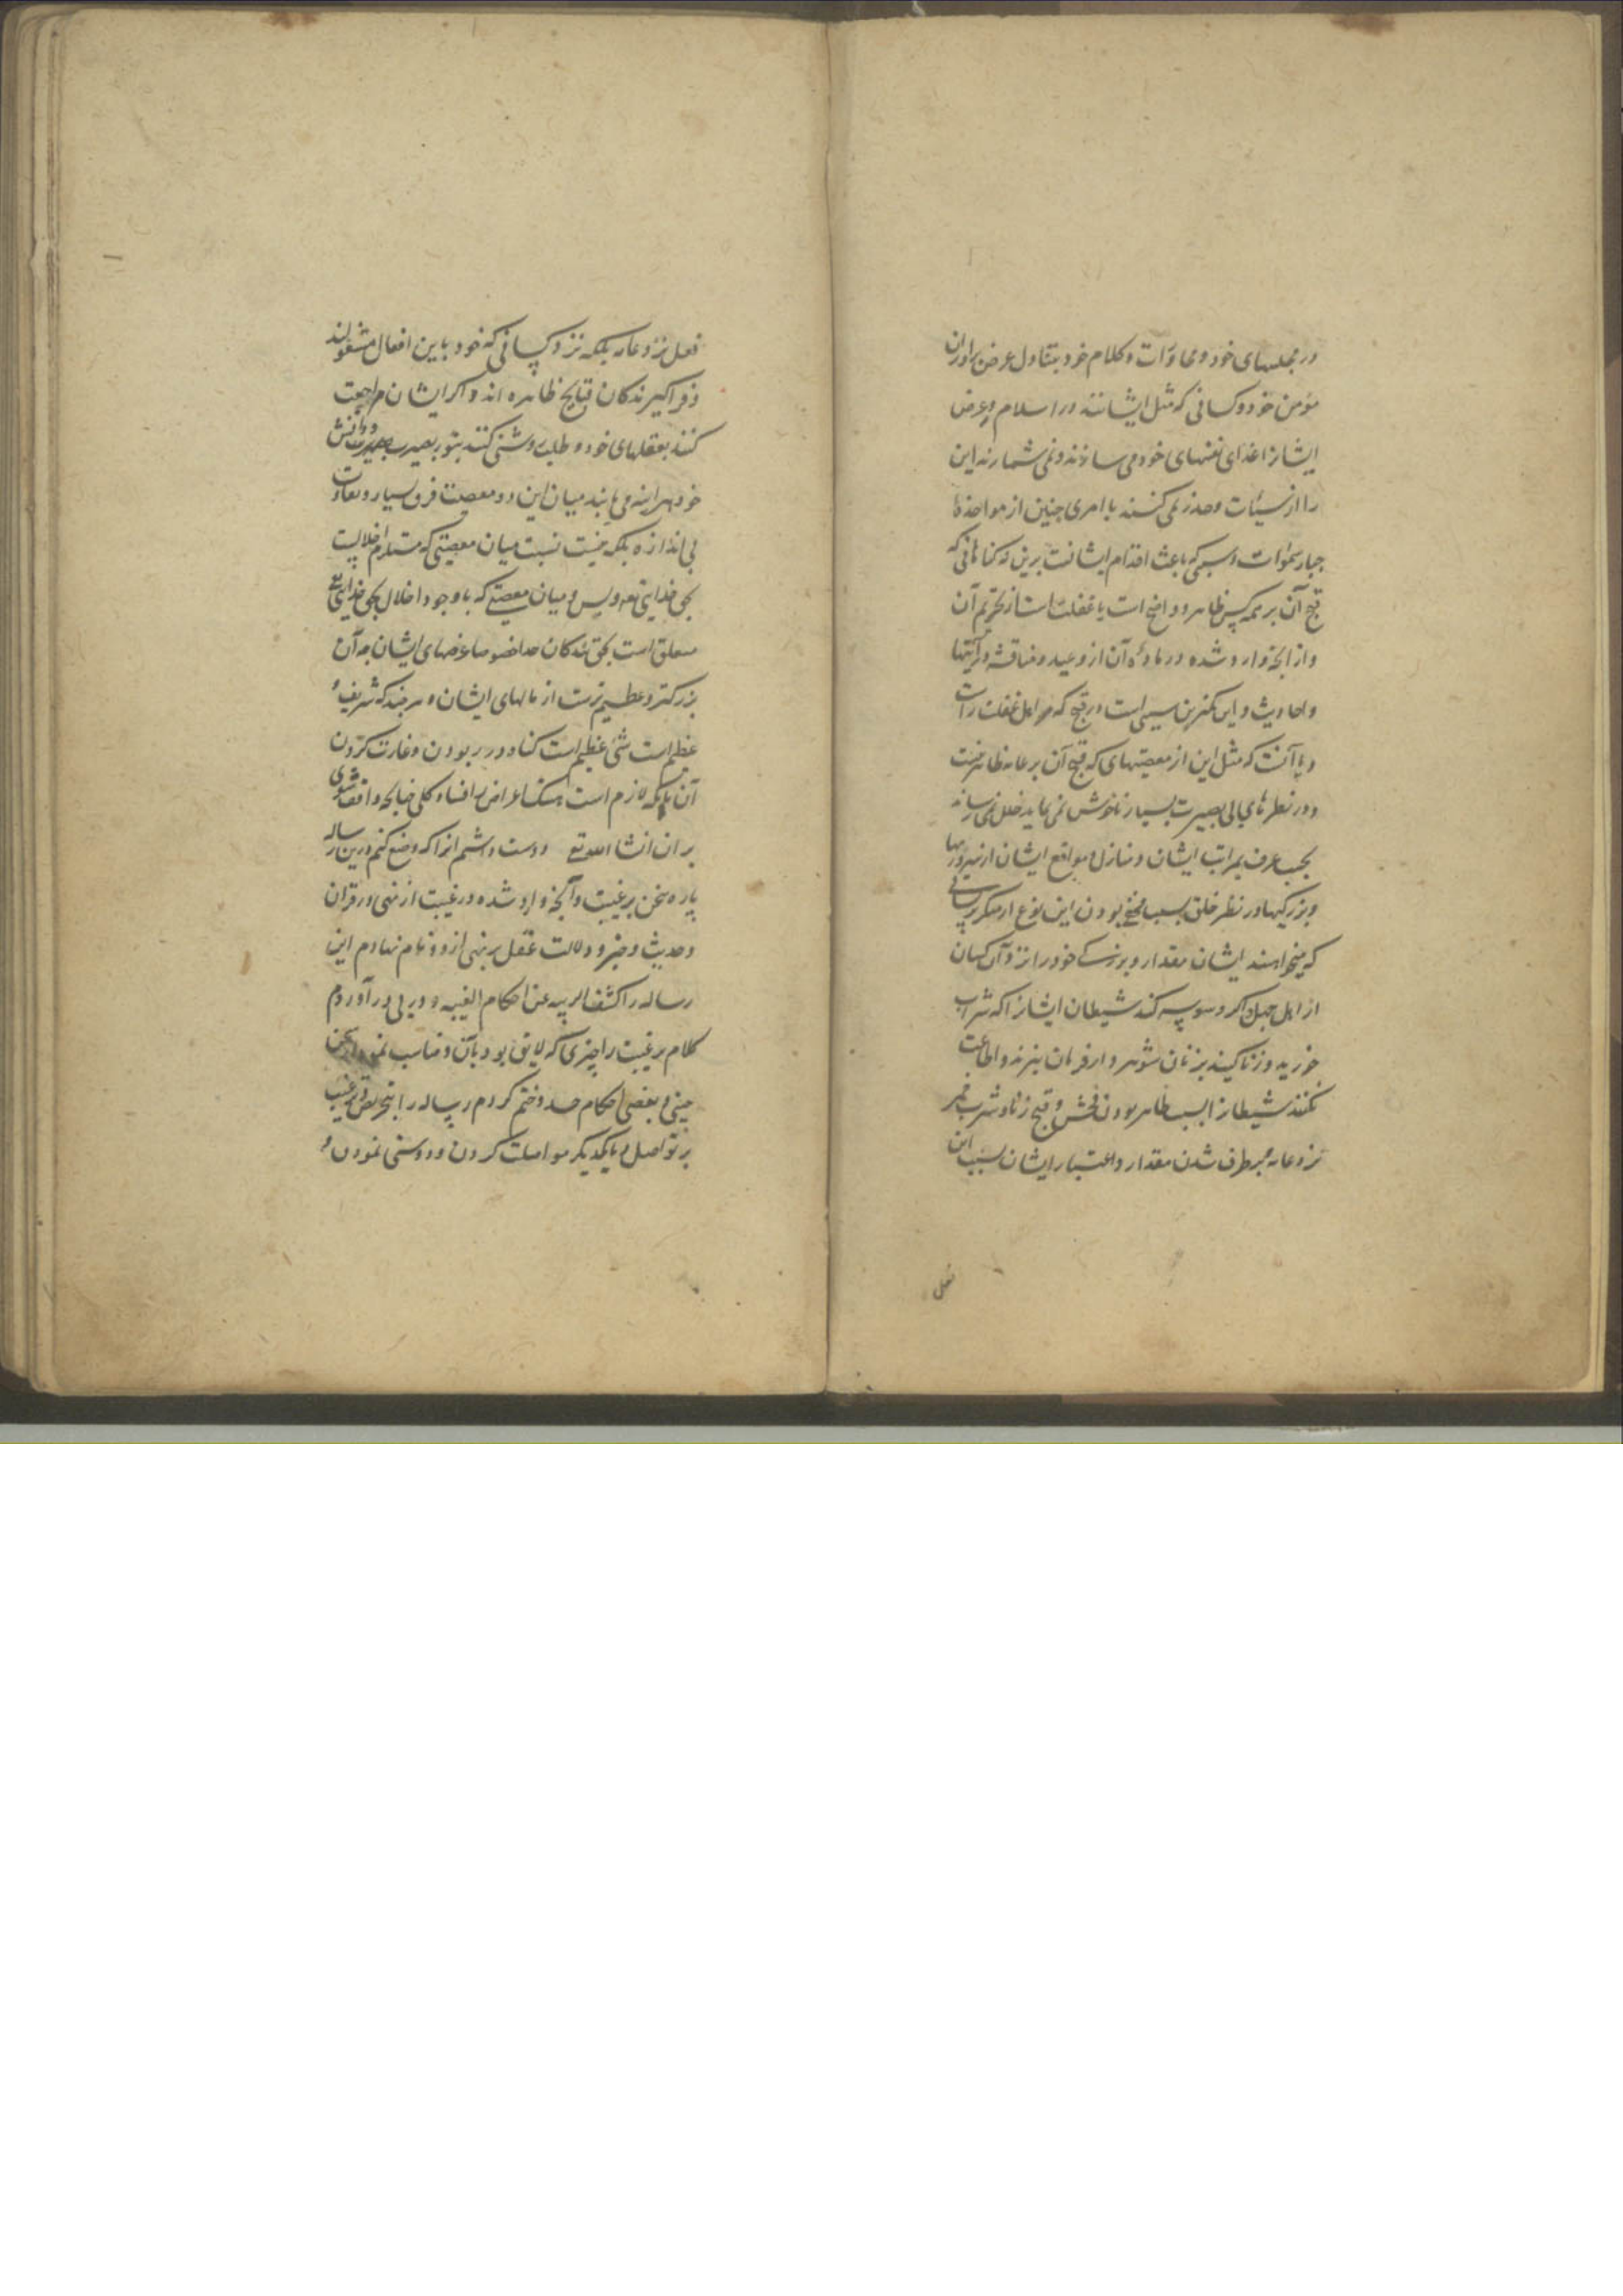 در مجلسهای خود و محاورات و کلام خود بتناول عرض برادران
مؤمن خود و کسانی که مثل ایشانند در اسلام و عرض
ایشانرا غذای نفسهای خود می سازند و نمی شمارند این
را از سیئات و حذر نمی کنند با امری چنین از مواخذهٔ
جبار سموات و سببی که باعث اقدام ایشانست برین نه کناهانی که
قبح آن بر همه کس ظاهر و واضح است یا غفلت است از تحریم آن
و از آنچه وارد شده در ماده آن از وعید و مناقشه در آیتها
و احادیث و این کمترین سببی است در قبح که مر اهل غفلت راست
و یا آنست که مثل این از معصیتهای که قبح آن بر عامه ظاهر نیست
و در نظرهای بی بصیرت بسیار ناخوش نمی نماید خلل نمی رساند
بحسب عرف بمراتب ایشان و منازل و مواقع ایشان از
و بزرکیها در نظر خلق بسبب مخفی بودن این نوع از منکر بر کسانی
که میخواهند ایشان مقدار و بزرکی خود را نزد آن کسان
از اهل جهل و اکر وسوسه کند شیطان ایشانرا که شراب
خورید و زنا کنید بزنان شوهردار فرمان نبرند و اطاعت
نکنند شیطانرا بسبب ظاهر بودن فحش و قبح زنا و شرب خمر
نزد عامه و برطرف شدن مقدار و اعتبار ایشان بسبب این
فعل
فعل نزد عامه بلکه نزد کسانی که خود باین افعال مشغولند
و فراکیرندکان قبایح ظاهره اند و اکر ایشان مراجعت
کنند بعقلهای خود و طلب روشنی کنند بنور بصیرت و دانش
خود هراینه می یابند میان این دو معصیت فرق بسیار و تفاوت
بی اندازه بلکه نیست نسبت میان معصیتی که مستلزم اخلالیست
بحق خدایتعه و بس و میان معصیتی که با وجود اخلال بحق خدایتعه
متعلق است بحق بندکان خدا خصوصا عرضهای ایشان چه آن
بزرکتر و عظیم ترست از مالهای ایشان و هر چند که شریف و
عظیم است شئ عظیم است کناه در ربودن و غارت کردن
آن بلکه لازم است هتک اعراض را فساد کلی چنانچه واقف شوی
بران انشا الله تع و دوست داشتم انرا که وضع کنم درین رساله
پاره سخن بر غیبت و آنچه وارد شده در غیبت از نهی در قران
و حدیث و خبر و دلالت عقل بر نهی ازو و نام نهادم این
رساله را کشف الریبه عن احکام الغیبه و در پی در آوردم
کلام بر غیبت را چیزی که لایق بود بآن و مناسب نمود از سخن
چینی و بعضی احکام حسد و ختم کردم رساله را بتحریص و ترغیب
بر تواصل و بایکدیکر مواصلت کردن و دوستی نمودن و